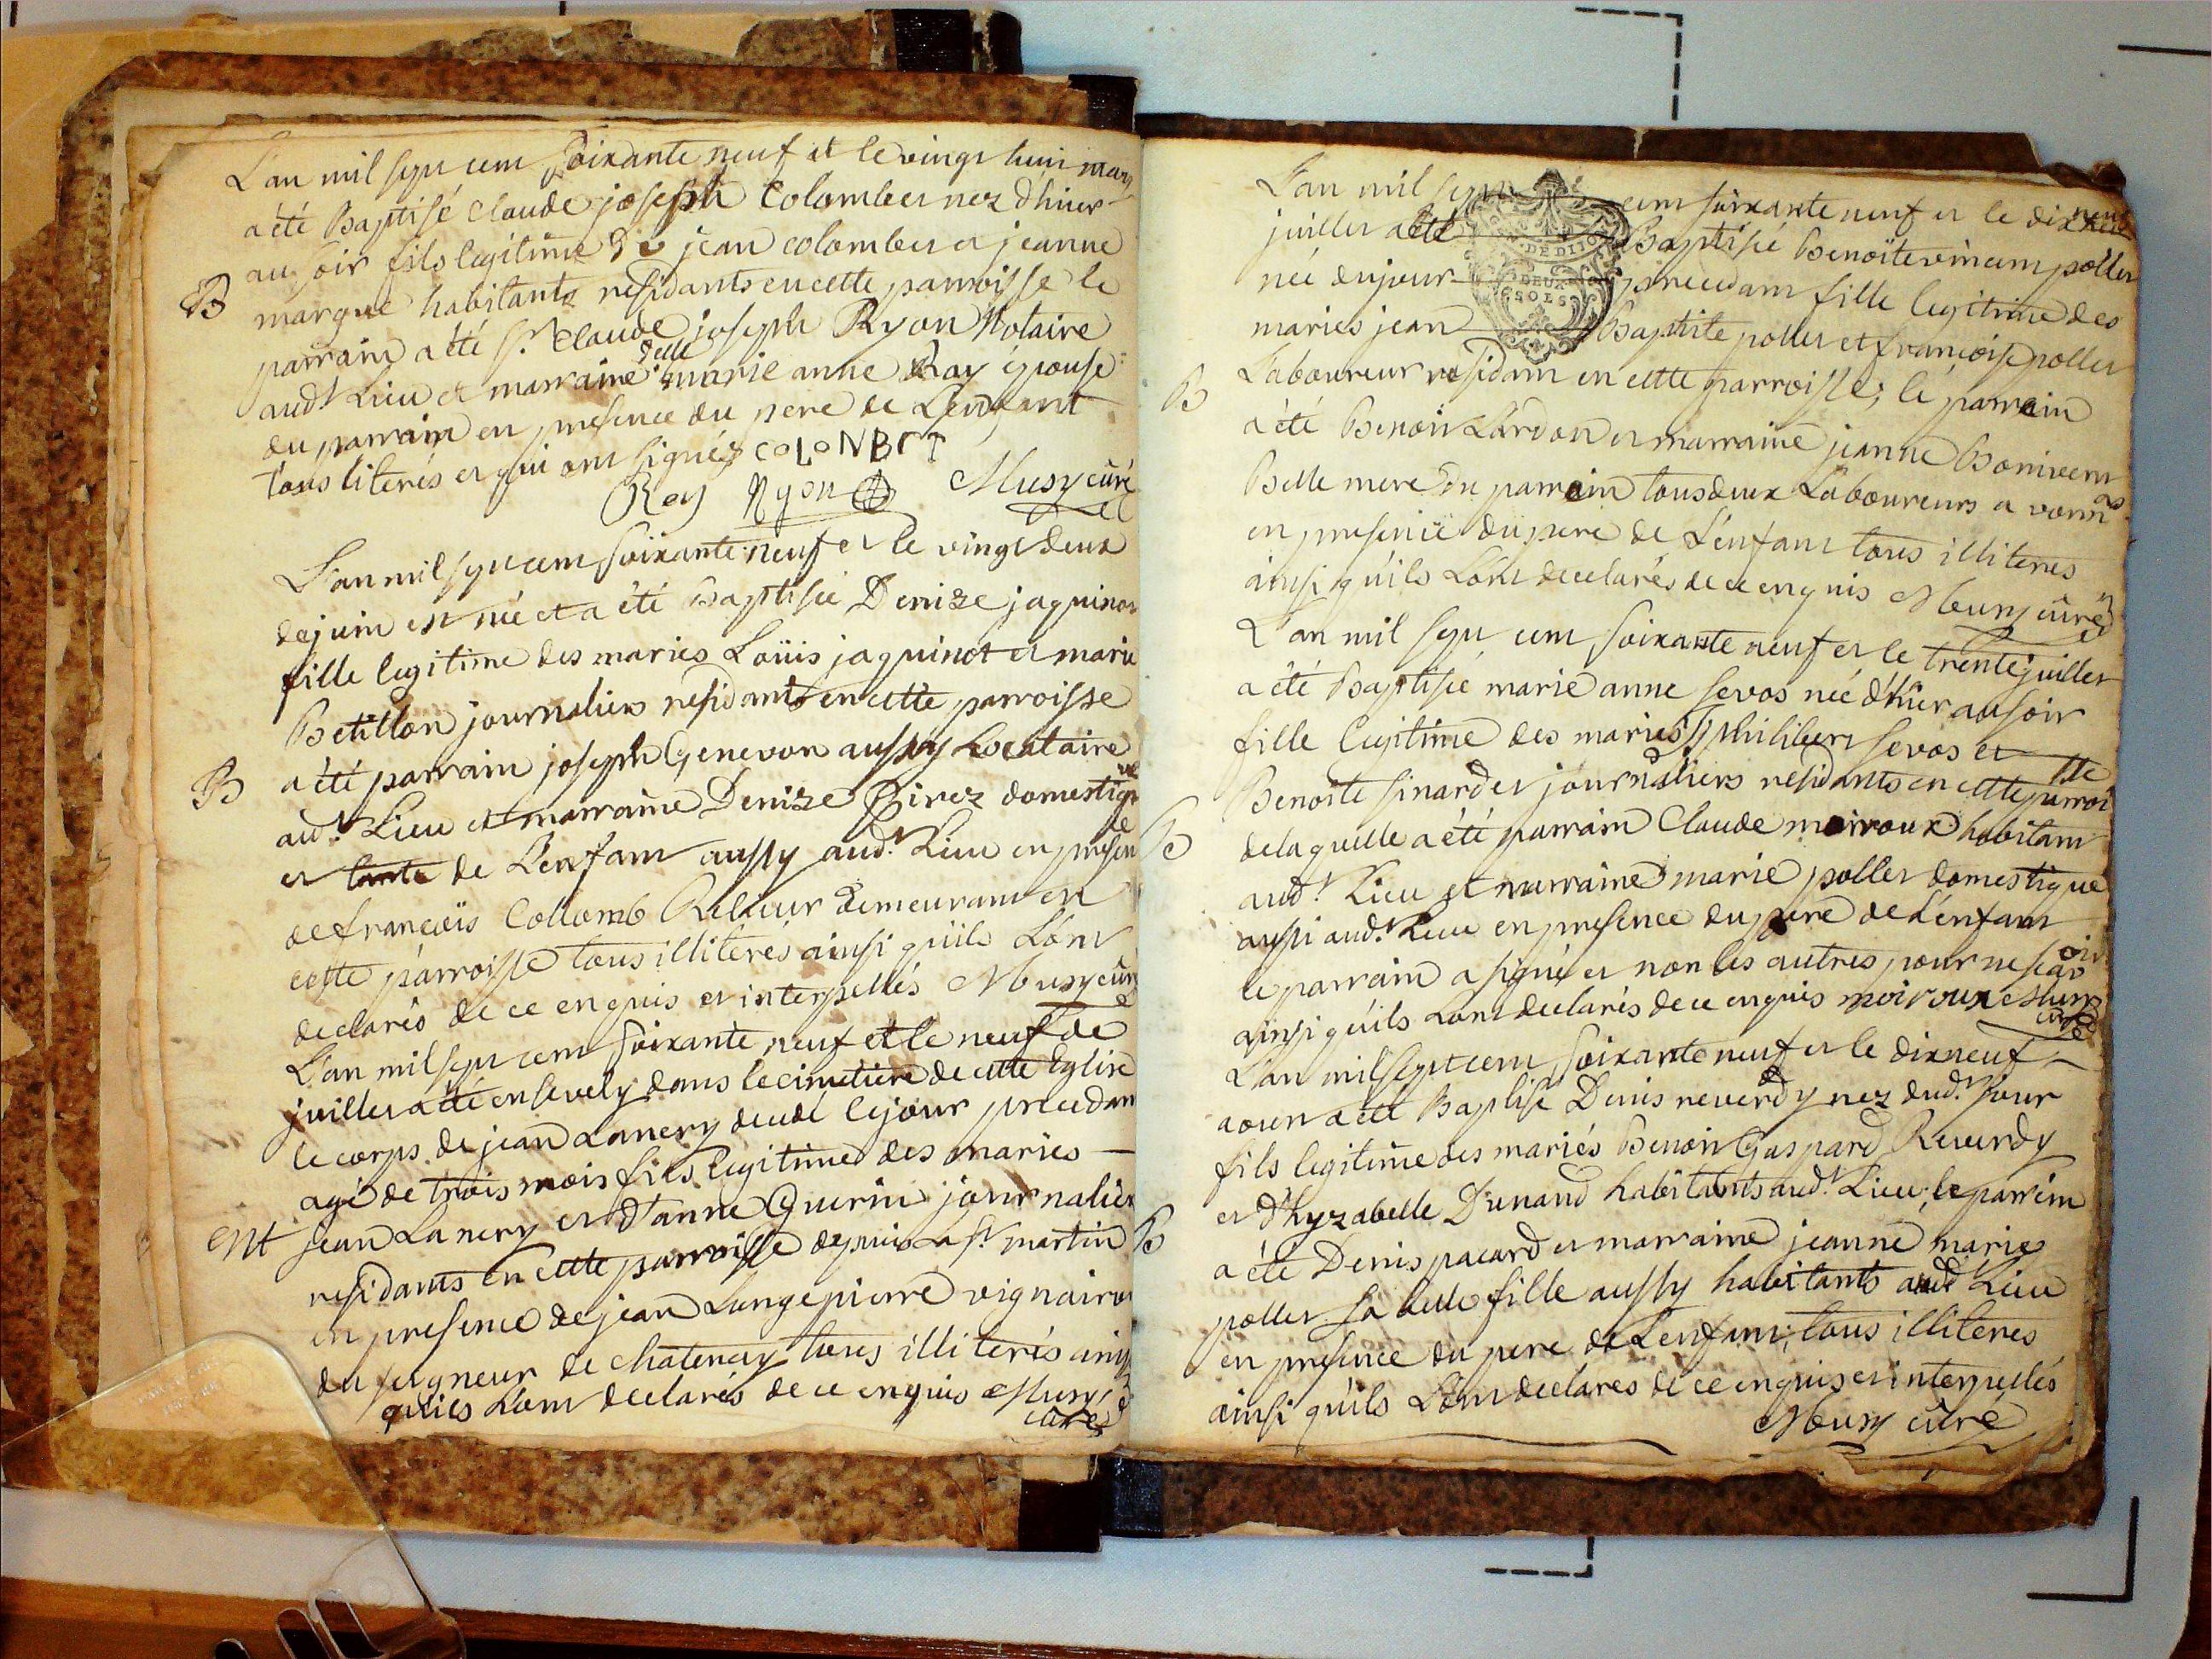 L'an mil sept cent soixante neuf et le vingt huit mars
a été Baptisé Claude joseph Colombet nez d'hier
au soir fils legitime de jean colombet et jeanne
B
margue habitants residants en cette parroisse le
parrain a été Sr. Claude joseph Ryon Notaire
aud.t Lieu et marraine delle marie anne Roy épouse
du parrain en presence du pere de L'enfant
tous literés et qui ont signés COLONBET
Roy Ryon Musy curé
L'an mil sept cent soixante neuf et le vingt deux
de juin est née et a été Baptisée Denize jaquinot
fille legitime des mariés Loüis jaquinot et marie
Betillon journaliers residants en cette parroisse
B
a été parrain joseph Genevon aussy Locataire
aud.t Lieu et marraine Denize domestique
et tante de L'enfant aussy aud.t Lieu en presence
de françois Collomb Relieur demeurant en
cette parroisse tous illiterés ainsi qu'ils L'ont
declarés de ce enquis et interpellés Musy curé
L'an mil sept cent soixante neuf et le neuf de
juillet a été ensevely dans le cimetiere de cette Eglise
le corps de jean Lanery decedé le jour precedant
agé de trois mois fils legitime des mariés
Ent
jean Lanery et d'anne Guerin journaliers
residants en cette parroisse depuis la St. martin
en presence de jean Langepierre vigneron
du seigneur de chatenay tous illiterés ainsy
qu'ils L'ont declarés de ce enquis Musy
curé
L'an mil sept cent soixante neuf et le dix neuf
juillet a été Baptisée Benoite vincent pollet
née du jour precedant fille legitime des
mariés jean Baptiste pollet et francoise pollet
DE DIJON
DEUX
SOLS
B
Laboureur residant en cette parroisse; le parrain
a été Benoit Lardon et marraine jeanne Bonivent
Belle mere du parrain tous deux Laboureurs a
en presence du pere de L'enfant tous illiteres
ainsi qu'ils L'ont declarés de ce enquis Musy curé
L'an mil sept cent soixante neuf et le trente juillet
a été Baptisée marie anne sevos née d'hier au soir
fille legitime des mariés philibert sevos et
Benoite sinardet journaliers residants en cette parroisse
B
de laquelle a été parrain Claude moiroux habitant
aud.t Lieu et marraine marie pollet domestique
aussi aud.t Lieu en presence du pere de L'enfant
le parrain a signé et non les autres pour ne sçavoir
ainsi qu'ils L'ont declarés de ce enquis moiroux Musy
curé
L'an mil sept cent soixante neuf et le dix neuf
aoust a été Baptisé Denis reverdy nez dud.t jour
fils legitime des mariés Benoit Gaspard Reverdy
et d'hyzabelle Dunand habitants aud.t Lieu; le parrein
B
a été Denis pacard et marraine jeanne marie
pollet sa belle fille aussy habitants aud.t Lieu
en presence du pere de L'enfant; tous illiteres
ainsi qu'ils L'ont declares de ce enquis et interpellés
Musy curé